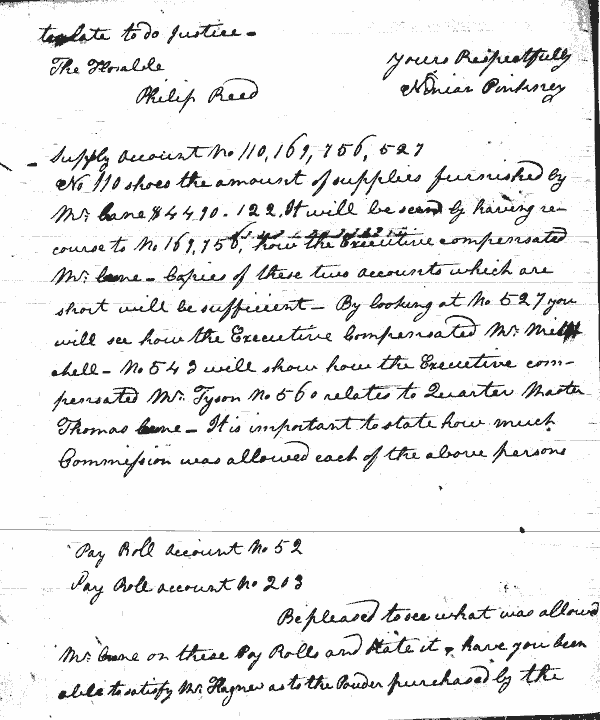 too late to do Justice -
The Honable
Yours Respectfully
Philip Reed
Ninian Pinkney
Supply account No 110, 169, 756, 527
No 110 shoes the amount of supplies furnished by
Mr. Cane $4490.122. It will be seen by having re-
course to No 169, 756, how the Executive compensated
Mr. Cane - Copies of these two accounts which are
short will be sufficient - By looking at No 527 you
will see how the Executive Compensated Mr. Mitt
chell - No 543 will show how the Executive com-
pensated Mr. Tyson No 560 relates to Quarter Master
Thomas Cane - It is important to state how much
Commission was allowed each of the above persons
Pay Roll account No 52
Pay Role account No 203
Be pleased to see what was allowed
Mr. Cane on these Pay Rolls and state it & have you been
able to satisfy Mr. Hagner as to the Powder purchased by the